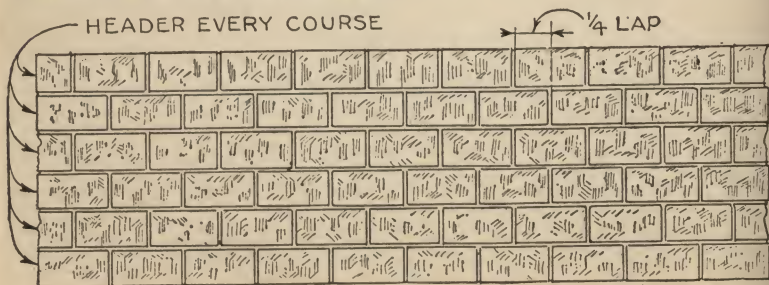 HEADER EVERY COURSE
¼ LAP